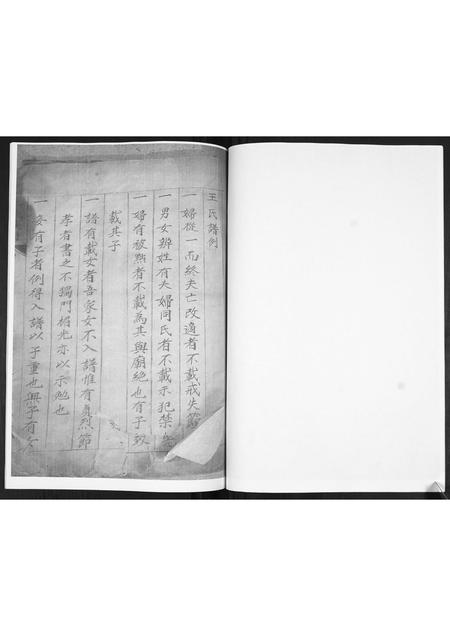 王氏譜例
一婦從一而終夫亡改適者不載戒失節
一男女辨姓有夫婦同氏者不載示犯禁
一婦有被黜者不載為其與廟絕也有子故
載其子
一譜有載女者吾家女不入譜惟有貞烈節
孝者書之不獨門楣光亦以示勉也
一妾有子者例得入譜以子重也無子有